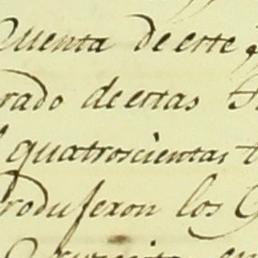 Cuenta de este
rado de estas
quatrocientas
rodujeron los